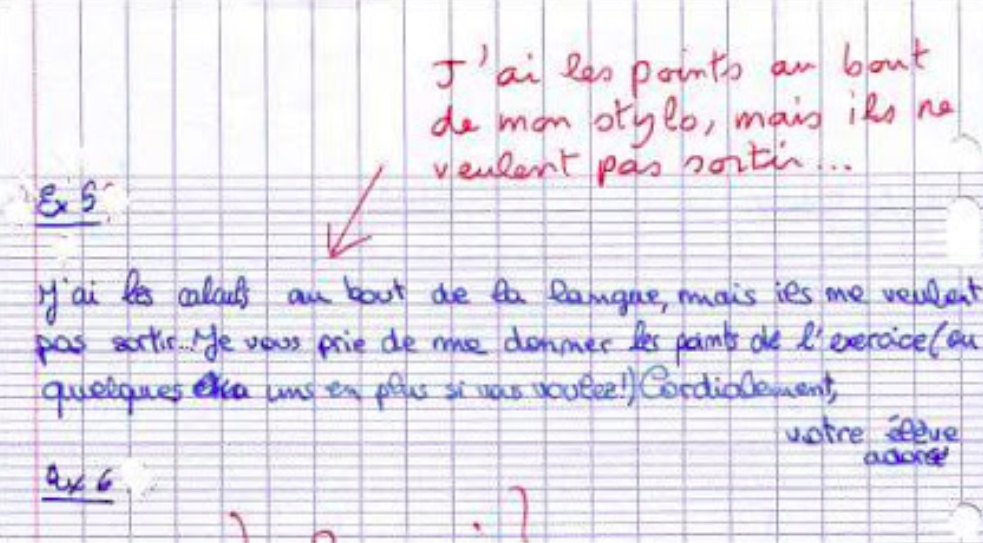 J'ai les points au bout
de mon stylo, mais ils ne
veulent pas sortir...
Ex 5
J'ai les calculs au bout de la langue, mais ils me veulent
pas sortir... Je vous prie de me donner les points de l'exercice (ou
quelques uns en plus si vous voulez!) Cordialement,
votre élève
adoré
Ex 6